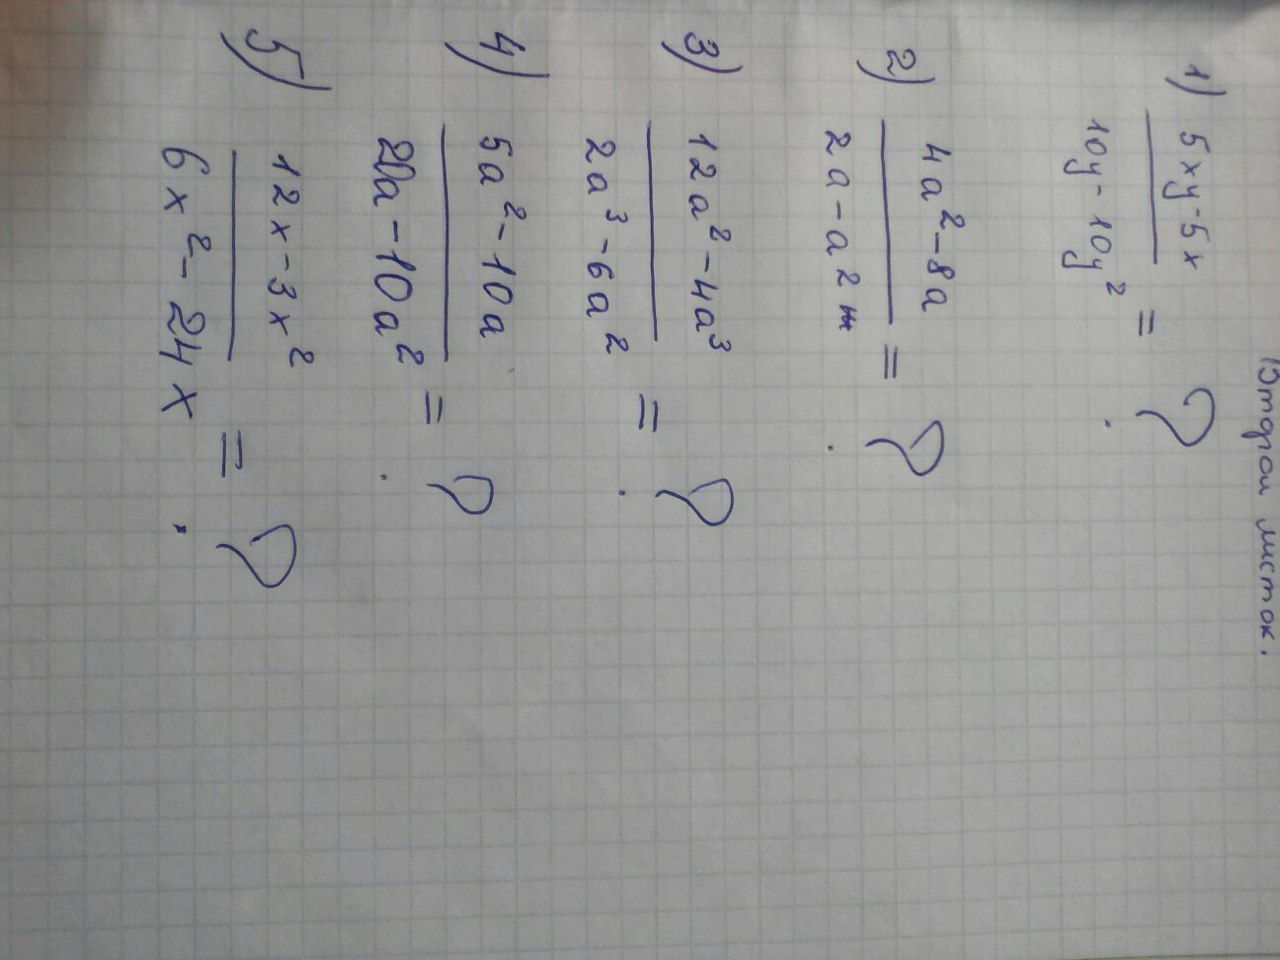 Второй листок.
1) 5xy-5x
10y-10y² = ?
2) 4a²-8a
2a-a² = ?
3) 12a²-4a³
2a³-6a² = ?
4) 5a²-10a
20a-10a² = ?
5) 12x-3x²
6x²-24x = ?